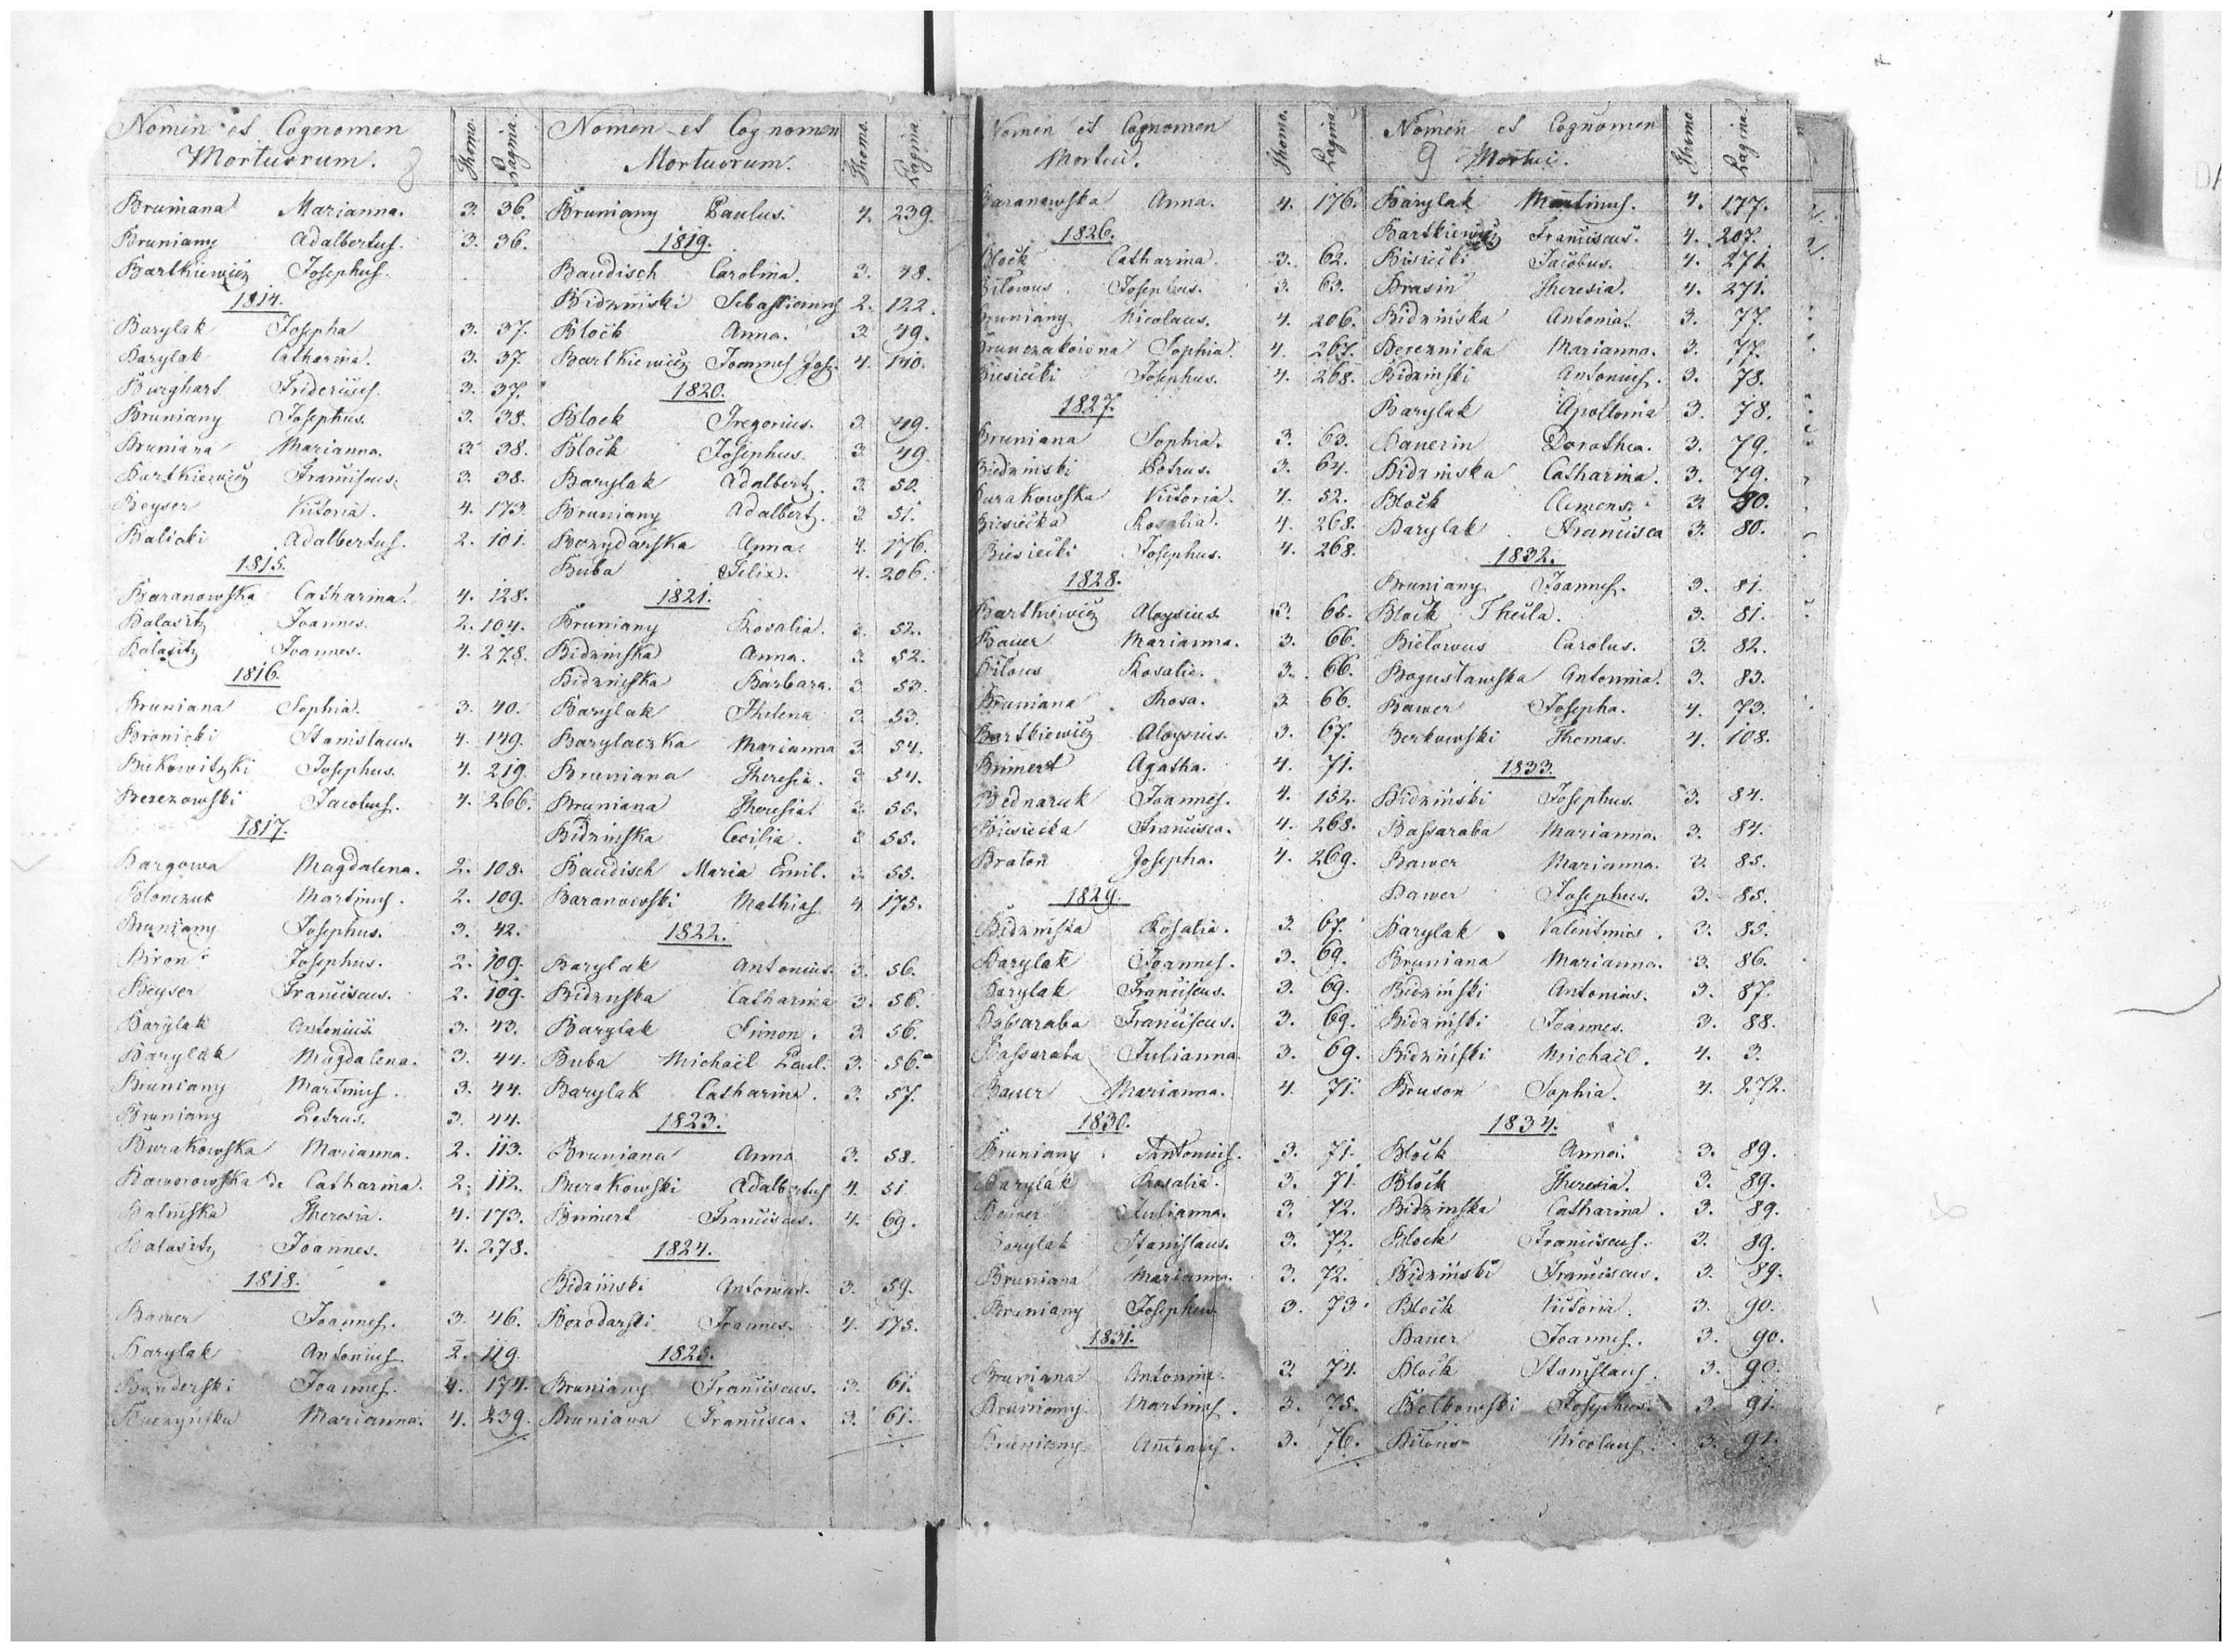 Nomen et Cognomen
Mortuorum. 8
Thomo. Pagina.
Bruniana Marianna. 3. 36.
Bruniany Adalbertus. 3. 36.
Bartkiewicz Josephus.
1814.
Barylak Josepha 3. 37.
Barylak Catharina. 3. 37.
Burghart Fridericus. 3. 37.
Bruniany Josephus. 3. 38.
Bruniana Marianna. 3. 38.
Bartkiewicz Franciscus. 3. 38.
Beyser Victoria. 4. 173.
Balicki Adalbertus. 2. 101.
1815.
Baranowska Catharina. 4. 128.
Balasitz Joannes. 2. 104.
Balasitz Joannes. 4. 278.
1816.
Bruniana Sophia. 3. 40.
Bronicki Stanislaus. 4. 149.
Bukowitzki Josephus. 4. 219.
Berezowski Jacobus. 4. 266.
1817.
Bargowa Magdalena. 2. 108.
Martinus. 2. 109.
Bruniany Josephus. 3. 42.
Biron Josephus. 2. 109.
Beyser Franciscus. 2. 109.
Barylak Antonius. 3. 43.
Barylak Magdalena. 3. 44.
Bruniany Martinus. 3. 44.
Bruniany Petrus. 3. 44.
Burakowska Marianna. 2. 113.
Baworowska de Catharina. 2. 112.
Balinska Theresia. 4. 173.
Balasitz Joannes. 4. 278.
1818.
Bawer Joannes. 3. 46.
Barylak Antonius. 2. 119.
Banderski Joannes. 4. 174.
Buczynska Marianna. 4. 239.
Nomen et Cognomen
Mortuorum.
Thomo. Pagina
Bruniany Paulus. 4. 239.
1819.
Baudisch Carolina. 3. 48.
Bidzinski Sebastianus 2. 122.
Block Anna. 3. 49.
Bartkiewicz Joannes Jos. 4. 140.
1820.
Block Gregorius. 3. 49.
Block Josephus. 3. 49.
Barylak Adalbert. 3. 50.
Bruniany Adalbert. 3. 51.
Bozydarska Anna. 4. 176.
Buba Felix. 4. 206.
1821.
Bruniany Rosalia. 3. 52.
Bidzinska Anna. 3. 52.
Bidzinska Barbara. 3. 53.
Barylak Thelena 3. 53.
Barylaczka Marianna 3. 54.
Bruniana Theresia. 3. 54.
Bruniana Theresia. 3. 55.
Bidzinska Cecilia. 3. 55.
Baudisch Maria Emil. 3. 55.
Baranowski Mathias 4. 175.
1822.
Barylak Antonius. 3. 56.
Bidzinska Catharina 3. 56.
Barylak Simon. 3. 56.
Buba Michaël Paul. 3. 56.
Barylak Catharina. 3. 57.
1823.
Bruniana Anna 3. 58.
Burakowski Adalbertus 4. 51.
Brinert Franciscus. 4. 69.
1824.
Bidzinski Antonius. 3. 59.
Bozodarski Joannes. 4. 175.
1825.
Bruniany Franciscus. 3. 61.
Bruniana Francisca. 3. 61.
Nomen et Cognomen
Mortui.
Thomo. Pagina
Baranowska Anna. 4. 176.
1826.
Block Catharina. 3. 62.
Bilowus Josephus. 3. 63.
Bruniany Nicolaus. 4. 206.
Sophia. 4. 267.
Biesiecki Josephus. 4. 268.
1827.
Bruniana Sophia. 3. 63.
Biedzinski Petrus. 3. 64.
Burakowska Victoria. 4. 52.
Biesiecka Rosalia. 4. 268.
Biesiecki Josephus. 4. 268.
1828.
Bartkiewicz Aloysius. 3. 65.
Bauer Marianna. 3. 66.
Bilous Rosalia. 3. 66.
Bruniana Rosa. 3. 66.
Bartkiewicz Aloysius. 3. 67.
Brinert Agatha. 4. 71.
Bednaruk Joannes. 4. 152.
Biesiecka Francisca. 4. 268.
Braton Josepha. 4. 269.
1829.
Bidzinska Rosalia. 3. 67.
Barylak Joannes. 3. 69.
Barylak Franciscus. 3. 69.
Bassaraba Franciscus. 3. 69.
Bassaraba Julianna. 3. 69.
Bauer Marianna. 4. 71.
1830.
Bruniany Antonius. 3. 71.
Barylak Rosalia. 3. 71.
Bawer Julianna. 3. 72.
Barylak Stanislaus. 3. 72.
Bruniana Marianna. 3. 72.
Bruniany Josephus. 3. 73.
1831.
Bruniana Antonina. 3. 74.
Bruniany Martinus. 3. 75.
Bruniany Antonius. 3. 76.
Nomen et Cognomen
9 Mortui.
Thomo. Pagina.
Barylak Martinus. 4. 177.
Bartkiewicz Franciscus. 4. 207.
Bisiecki Jacobus. 4. 271.
Brasin Theresia. 4. 271.
Bidzinska Antonia. 3. 77.
Bereznicka Marianna. 3. 77.
Bidzinski Antonius. 3. 78.
Barylak Apollonia 3. 78.
Bauerin Dorothea. 3. 79.
Bidzinska Catharina. 3. 79.
Block Clemens. 3. 80.
Barylak Francisca 3. 80.
1832.
Bruniany Joannes. 3. 81.
Block Theila. 3. 81.
Bielowus Carolus. 3. 82.
Bogusławska Antonina. 3. 83.
Bawer Josepha. 4. 73.
Berkowski Thomas. 4. 108.
1833.
Bidzinski Josephus. 3. 84.
Bassaraba Marianna. 3. 84.
Bawer Marianna. 3. 85.
Bawer Josephus. 3. 85.
Barylak Valentinus. 3. 85.
Bruniana Marianna. 3. 86.
Bidzinski Antonius. 3. 87.
Bidzinski Joannes. 3. 88.
Bidzinski Michaël. 4. 3.
Bruson Sophia. 4. 272.
1834.
Block Anna. 3. 89.
Block Theresia. 3. 89.
Bidzinska Catharina. 3. 89.
Block Franciscus. 3. 89.
Bidzinski Franciscus. 3. 89.
Block Victoria. 3. 90.
Bauer Joannes. 3. 90.
Block Stanislaus. 3. 90.
Bolkowski Josephus. 3. 91.
Bilous Nicolaus. 3. 91.